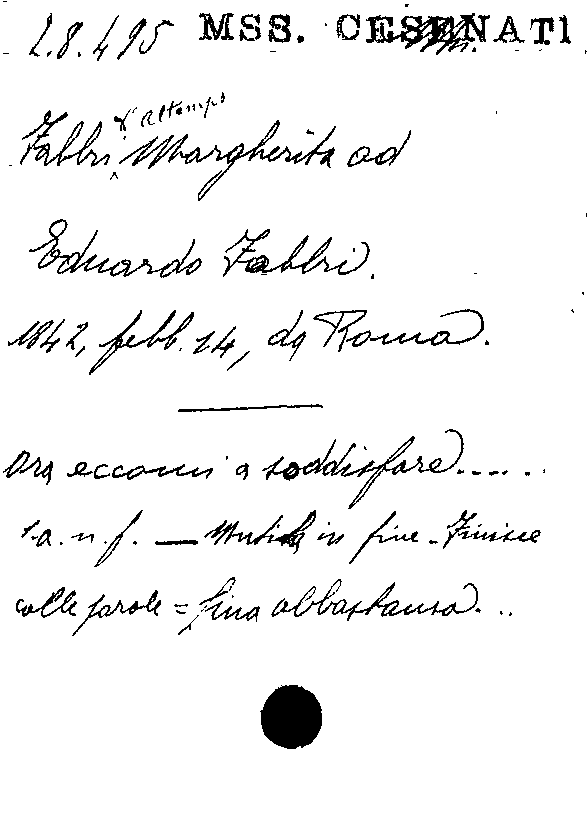 2.8.495 MSS. CESENATI
d'Altemps
Fabbri Margherita ad
Eduardo Fabbri.
1842, febb. 14, da Roma.
Ora eccomi a soddisfare.....
s.a.n.f. — Mutila in fine - Finisce
colle parole = fina abbastanza...